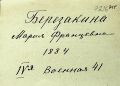 Березакина
Мария Францевна
1884
IVя Военная 41